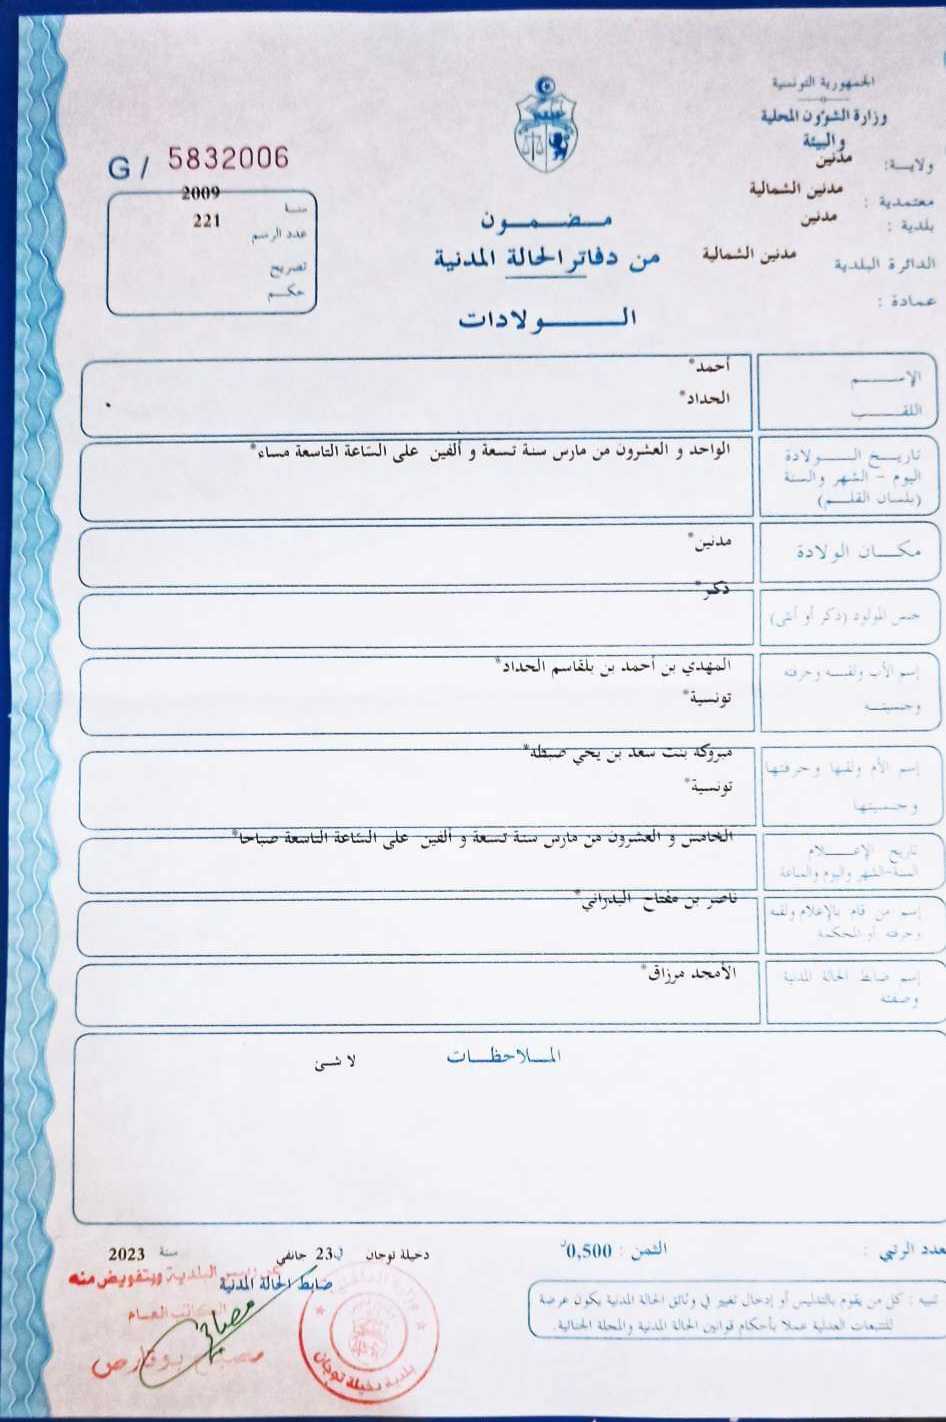 الجمهورية التونسية
وزارة الشؤون المحلية
والبيئة
ولاية: مدنين
معتمدية : مدنين الشمالية
بلدية : مدنين
الدائرة البلدية مدنين الشمالية
عمادة :
G / 5832006
سنة 2009
عدد الرسم 221
تصريح
حكم
مضمون
من دفاتر الحالة المدنية
الولادات
الإسم أحمد*
اللقب الحداد*
تاريخ الولادة الواحد و العشرون من مارس سنة تسعة و ألفين على الساعة التاسعة مساء*
اليوم - الشهر والسنة
(بلسان القلم)
مكان الولادة مدنين*
جنس المولود (ذكر أو أنثى) ذكر*
إسم الأب ولقبه وحرفته المهدي بن أحمد بن بلقاسم الحداد*
وجنسيته تونسية*
إسم الأم ولقبها وحرفتها مبروكة بنت سعد بن يحي ضبطه*
وجنسيتها تونسية*
تاريخ الإعلام الخامس و العشرون من مارس سنة تسعة و ألفين على الساعة التاسعة صباحا*
السنة-الشهر واليوم والساعة
إسم من قام بالإعلام ولقبه ناصر بن مفتاح البدراني*
وحرفته أو المحكمة
إسم ضابط الحالة المدنية الأمجد مرزاق*
وصفته
الملاحظات
لا شئ
عدد الرتبي :
الثمن : 0,500د
دخيلة توجان في 23 جانفي سنة 2023
ضابط الحالة المدنية
عن رئيس البلدية وبتفويض منه
الكاتب العام
بلدية دخيلة توجان
تنبيه : كل من يقوم بالتدليس أو إدخال تغيير في وثائق الحالة المدنية يكون عرضة
للتتبعات العدلية عملا بأحكام قوانين الحالة المدنية والمجلة الجنائية.